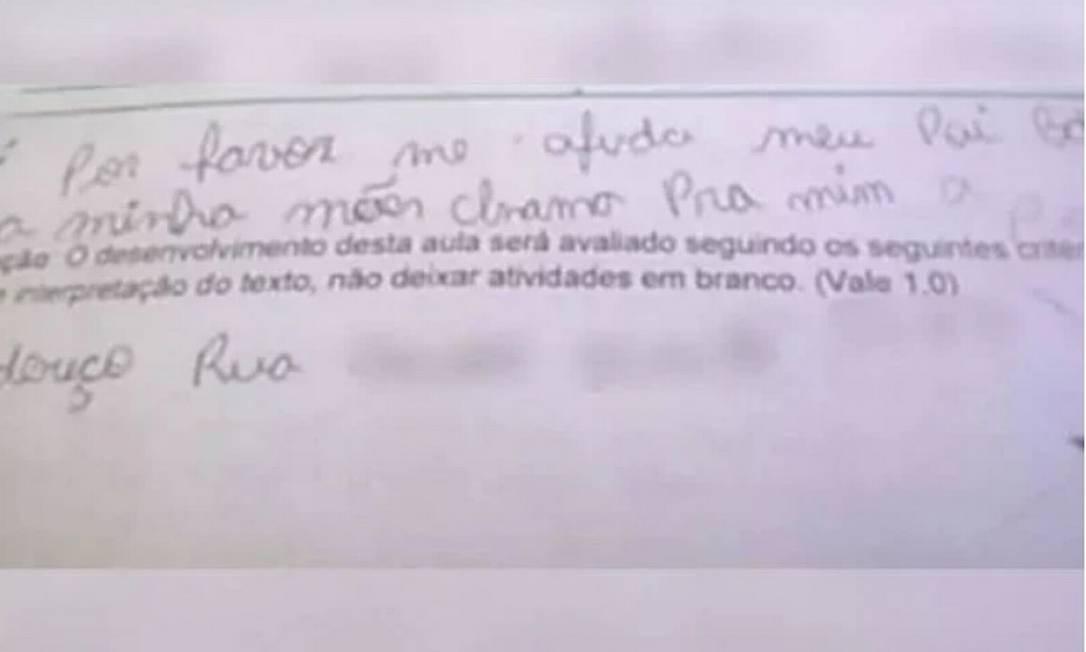 Por favor me afuda meu Pai
a minha mãen chamo Pra mim a
ção O desenvolvimento desta aula será avaliado seguindo os seguintes crité
e interpretação do texto, não deixar atividades em branco. (Vale 1.0)
douço Rua